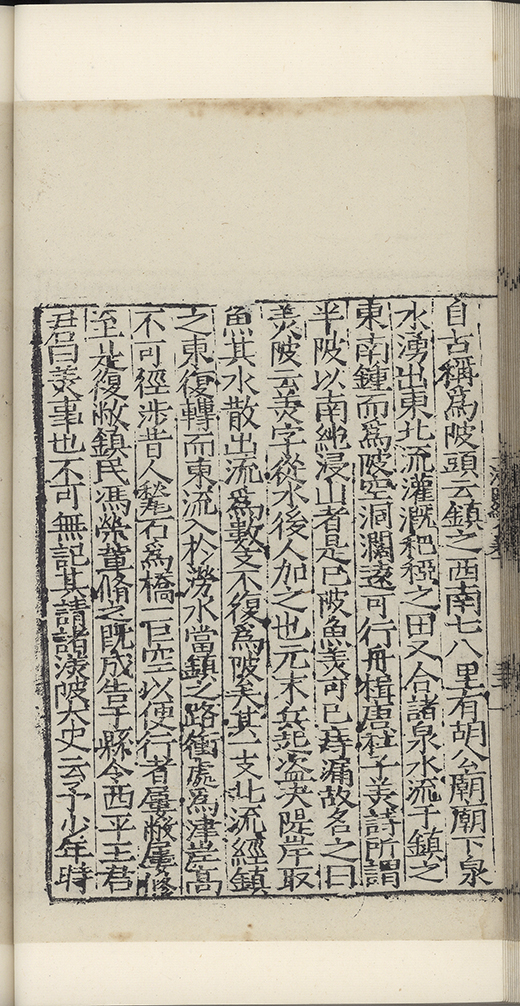 自古稱爲陂頭云鎮之西南七八里有胡公廟廟下泉
水湧出東北流灌溉䆉稏之田又合諸泉水流于鎮之
東南鍾而爲陂空洞濶遠可行舟楫唐杜子美詩所謂
半陂以南純浸山者是已陂魚羙可已痔漏故名之曰
羙陂云羙字從水後人加之也元末兵起盗决隄岸取
魚其水散出流爲數支不復爲陂矣其一支北流經鎮
之東復轉而東流入於澇水當鎮之路衝處爲津岸高
不可徑涉昔人甃石爲橋一巨空以便行者屢敝屢修
至是復敝鎮民馮榮董脩之既成告于縣令西平王君
君曰羙事也不可無記其請諸渼陂太史云予少年時